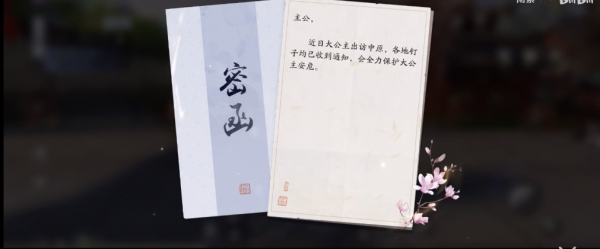 密函
主公，
近日大公主出访中原，各地钉
子均已收到通知，会全力保护大公
主安危。